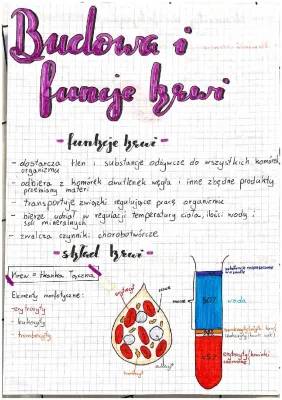 Budowa i
funcje krwi
- funkcje krwi -
- dostarcza tlen i substancje odżywcze do wszystkich komórek
organizmu
- odbiera z komórek dwutlenek węgla i inne zbędne produkty
przemiany materii
- transportuje związki regulujące pracę organizmu
- bierze udział w regulacji temperatury ciała, ilości wody i
soli mineralnych
- zwalcza czynniki chorobotwórcze
- skład krwi -
Krew = tkanka łączna
Elementy morfotyczne:
- erytrocyty
- leukocyty
- trombocyty
osocze
woda
erytrocyty